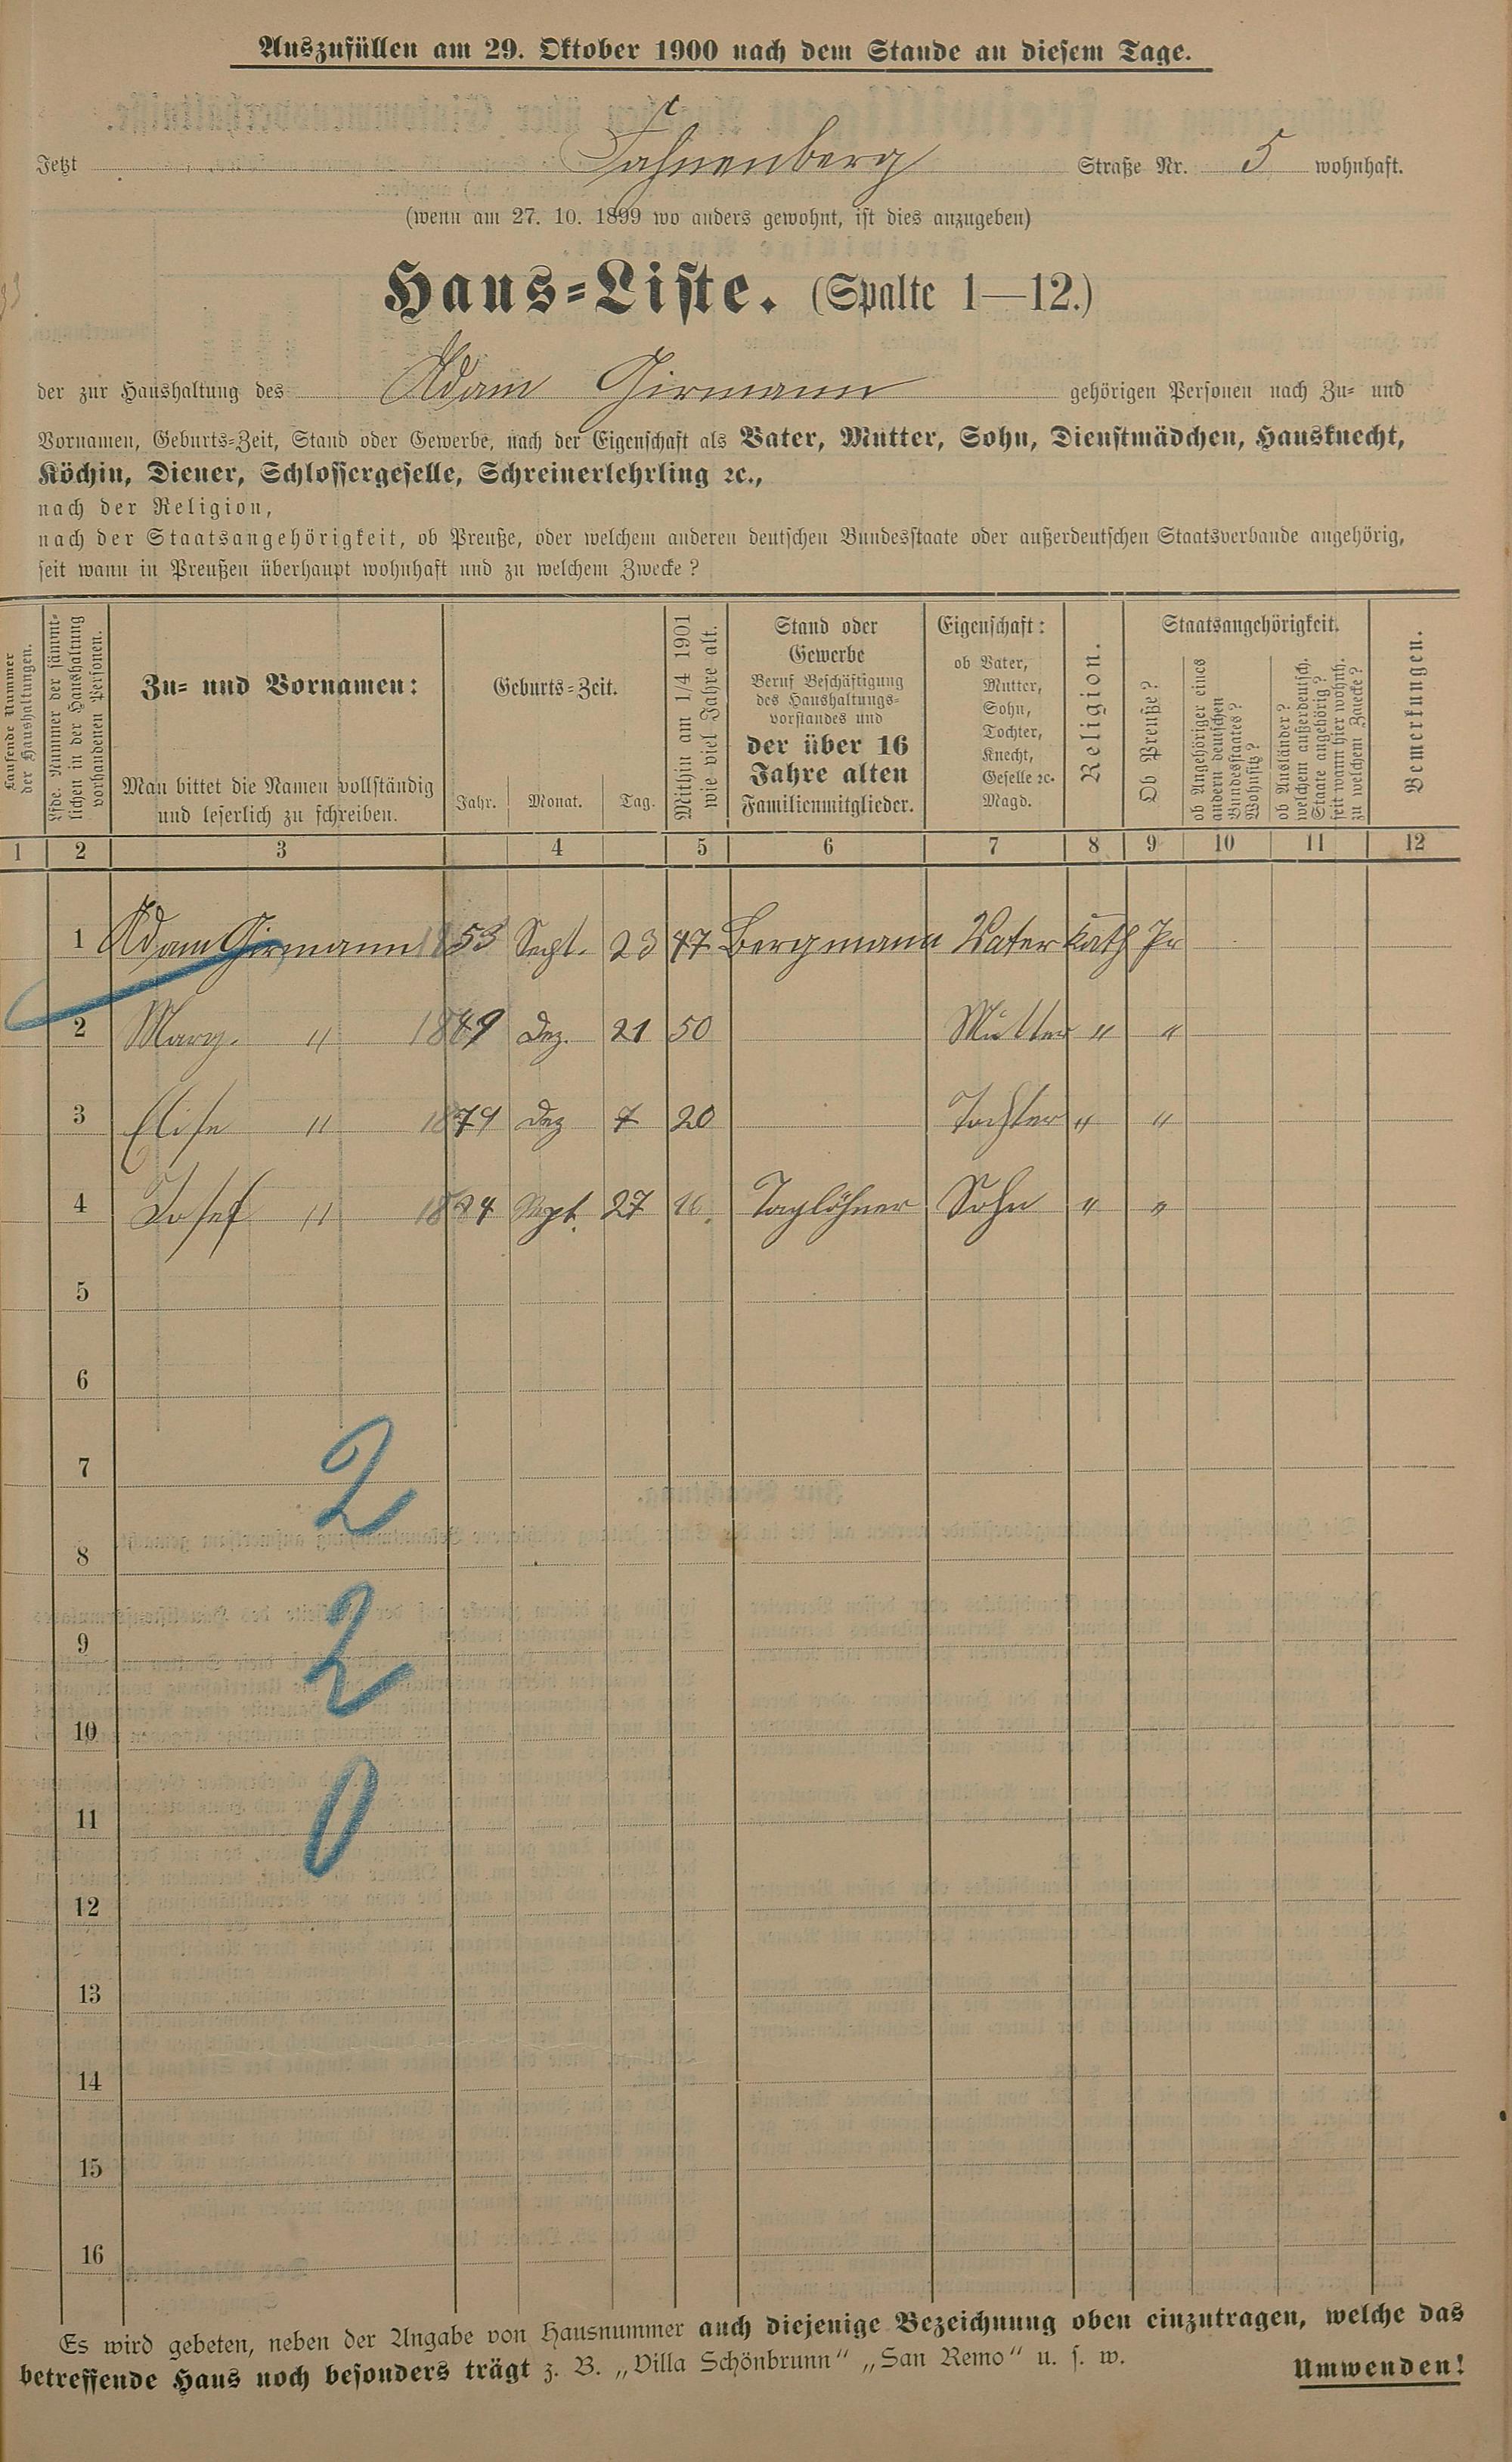 Auszufüllen am 29. Oktober 1900 nach dem Stande an diesem Tage.
Jetzt Fahnenberg Straße Nr. 5 wohnhaft.
(wenn am 27. 10. 1899 wo anders gewohnt, ist dies anzugeben)
Haus-Liste. (Spalte 1—12.)
der zur Haushaltung des Adam Girmann gehörigen Personen nach Zu- und
Vornamen, Geburts-Zeit, Stand oder Gewerbe, nach der Eigenschaft als Vater, Mutter, Sohn, Dienstmädchen, Hausknecht,
Köchin, Diener, Schlossergeselle, Schreinerlehrling ꝛc.,
nach der Religion,
nach der Staatsangehörigkeit, ob Preuße, oder welchem anderen deutschen Bundesstaate oder außerdeutschen Staatsverbande angehörig,
seit wann in Preußen überhaupt wohnhaft und zu welchem Zwecke?
Laufende Nummer
der Haushaltungen.
Lfde. Nummer der sämmt-
lichen in der Haushaltung
vorhandenen Personen.
Zu- und Vornamen:
Man bittet die Namen vollständig
und leserlich zu schreiben.
Geburts-Zeit.
Jahr. Monat. Tag.
Mithin am 1/4 1901
wie viel Jahre alt.
Stand oder
Gewerbe
Beruf Beschäftigung
des Haushaltungs-
vorstandes und
der über 16
Jahre alten
Familienmitglieder.
Eigenschaft:
ob Vater,
Mutter,
Sohn,
Tochter,
Knecht,
Geselle ꝛc.
Magd.
Religion.
Staatsangehörigkeit.
Ob Preuße?
ob Angehöriger eines
andern deutschen
Bundesstaates?
Wohnsitz?
ob Ausländer?
welchem außerdeutsch.
Staate angehörig?
seit wann hier wohnh.
zu welchem Zwecke?
Bemerkungen.
1 2 3 4 5 6 7 8 9 10 11 12
1 Adam Girmann 1853 Sept. 23 47 Bergmann Vater Kath Pr
2 Marg. " 1849 Dez. 21 50 Mutter " "
3 Elise " 1879 Dez 7 20 Tochter " "
4 Josef " 1884 Sept. 27 16. Taglöhner Sohn " "
5
6
7
2
8
9
2
10
11
0
12
13
14
15
16
Es wird gebeten, neben der Angabe von Hausnummer auch diejenige Bezeichnung oben einzutragen, welche das
betreffende Haus noch besonders trägt z. B. „Villa Schönbrunn“ „San Remo“ u. s. w.
Umwenden!